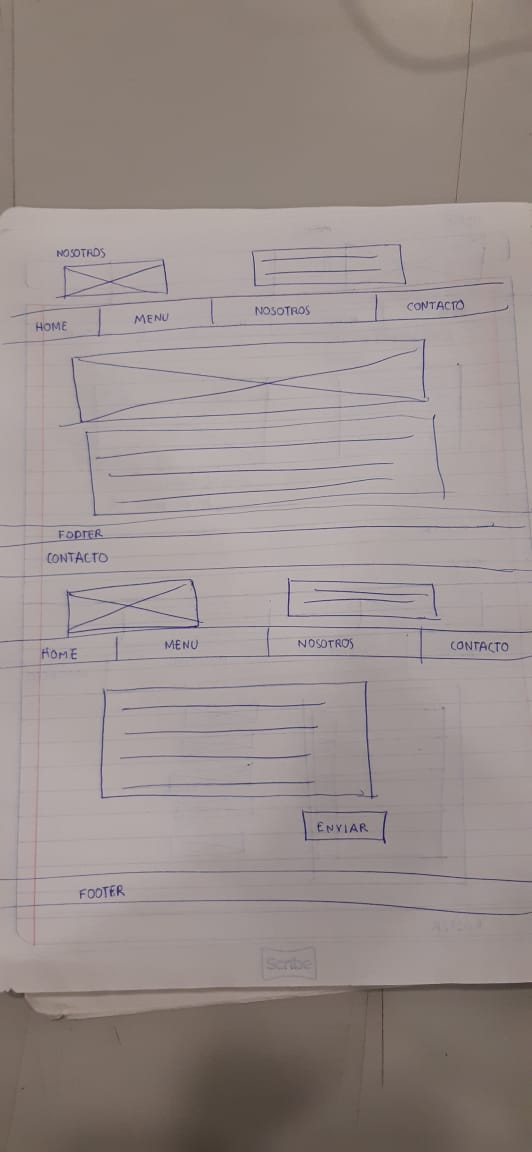 NOSOTROS
HOME MENU NOSOTROS CONTACTO
FOOTER
CONTACTO
HOME MENU NOSOTROS CONTACTO
ENVIAR
FOOTER
Scribe